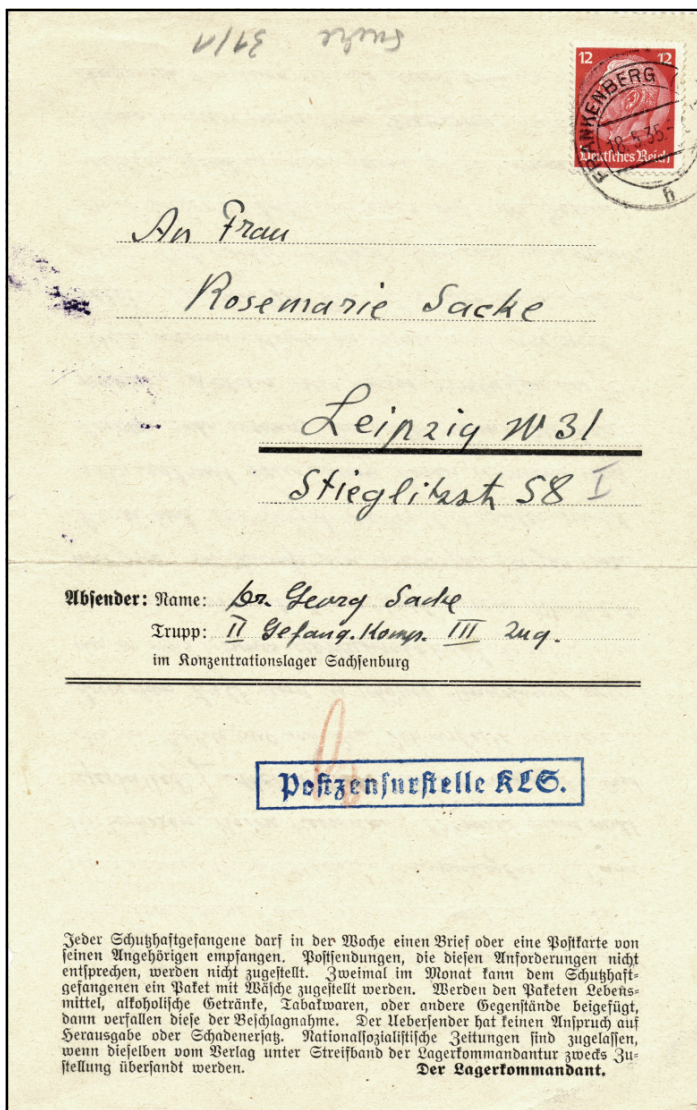 Sacke 31/1
12 12
Deutsches Reich
FRANKENBERG
18.5.35.
h
An Frau
Rosemarie Sacke
Leipzig W 31
Stieglitzstr 58 I
Absender: Name: Dr. Georg Sacke
Trupp: II Gefang. Komp. III Zug.
im Konzentrationslager Sachsenburg
Postzensurstelle KLS.
Jeder Schutzhaftgefangene darf in der Woche einen Brief oder eine Postkarte von
seinen Angehörigen empfangen. Postsendungen, die diesen Anforderungen nicht
entsprechen, werden nicht zugestellt. Zweimal im Monat kann dem Schutzhaft-
gefangenen ein Paket mit Wäsche zugestellt werden. Werden den Paketen Lebens-
mittel, alkoholische Getränke, Tabakwaren, oder andere Gegenstände beigefügt,
dann verfallen diese der Beschlagnahme. Der Uebersender hat keinen Anspruch auf
Herausgabe oder Schadenersatz. Nationalsozialistische Zeitungen sind zugelassen,
wenn dieselben vom Verlag unter Streifband der Lagerkommandantur zwecks Zu-
stellung übersandt werden. Der Lagerkommandant.